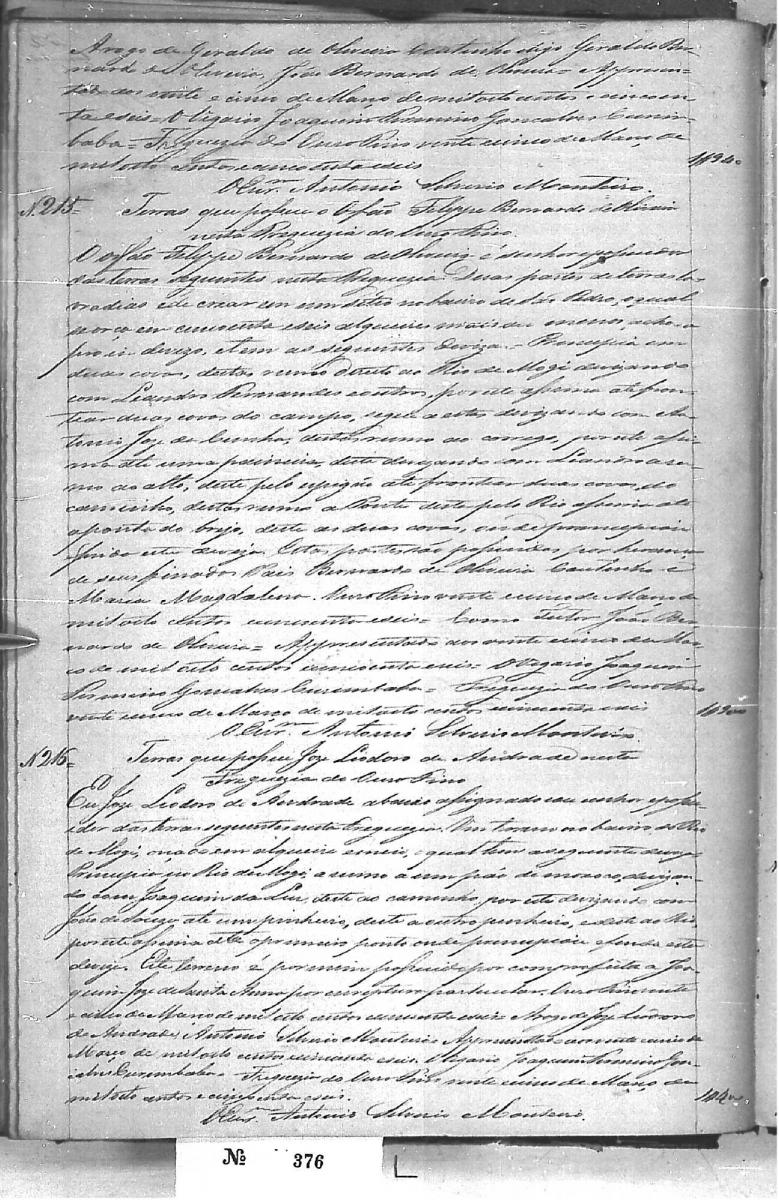 A rogo de Geraldo de Oliveira Coutinho digo Geraldo Ber-
nardo de Oliveira, João Bernardo de Oliveira = Appresen-
tado aos vinte e cinco de Março de mil oito centos e cincoen-
ta e seis = O Vigario Joaquim Firmino Gonçalves Curim-
baba = Freguezia do Ouro Fino vinte e cinco de Março de
mil oito centos e cincoenta e seis
O Escr.am Antonio Silverio Monteiro.
N. 215 = Terras que possue o Orfão Felippe Bernardo de Oliveira
nesta Freguezia do Ouro Fino.
O orfão Felippe Bernardo de Oliveira é senhor e possuidor
das terras seguintes nesta Freguezia. Duas partes de terras la-
vradias e de crear em um sitio no bairro de São Pedro, o qual
se orça em cincoenta e seis alqueires mais ou menos, acha-se
pro in devizo, e tem as seguintes devizas = Principia em
duas covas, destas rumo direito ao Rio de Mogi devizando
com Leandro Fernandes e outros, por este assima até fron-
tear duas covas do campo, segue a estas devizando com An-
tonio Joze da Cunha, destas rumo ao corrego, por este assi-
ma até uma paineira, deste devizando com ru-
mo ao alto, deste pelo espigão até frontear duas covas do
caminho, destas rumo a Ponte desta pelo Rio assima até
a ponta do brejo, deste as duas covas, onde principiou e
finda esta deviza. Estas partes são possuidas por herança
de seus finados Pais Bernardo de Oliveira Coutinho e
Maria Magdalena. Ouro Fino vinte e cinco de Março de
mil oito centos cincoenta e seis = Como Tutor João Ber-
nardo de Oliveira = Appresentado aos vinte e cinco de Mar-
ço de mil oito centos e cincoenta e seis = O Vigario Joaquim
Firmino Gonçalves Curimbaba = Freguezia do Ouro Fino
vinte e cinco de Março de mil oito centos cincoenta e seis
O Escr.am Antonio Silverio Monteiro.
N. 216 = Terras que possue Joze Liodoro de Andrade nesta
Freguezia do Ouro Fino
Eu Joze Liodoro de Andrade abaixo assignado sou senhor e possu-
idor das terras seguintes nesta Freguezia. Um terreno no bairro do Rio
de Mogi, orça em alqueire e meio, o qual tem a seguinte deviza
Principia no Rio de Mogi, a rumo a um páo de , devizan-
do com Joaquim da Luz, deste ao caminho por este devizando com
João de Souza até um pinheiro, deste a outro pinheiro, e deste ao Rio
por este assima até o primeiro ponto onde principiou e finda esta
deviza. Este terreno é por mim possuido por compra feita a Joa-
quim Joze de Santa Anna por escriptura particular. Ouro Fino vinte
e cinco de Março de mil oito centos cincoenta e seis = A rogo de Joze Liodoro
de Andrade, Antonio Silverio Monteiro. Appresentado aos vinte e cinco de
Março de mil oito centos cincoenta e seis. O Vigario Joaquim Firmino Gon-
çalves Curimbaba = Freguezia do Ouro Fino vinte e cinco de Março de
mil oito centos e cincoenta e seis.
O Escr.am Antonio Silverio Monteiro.
Nº 376